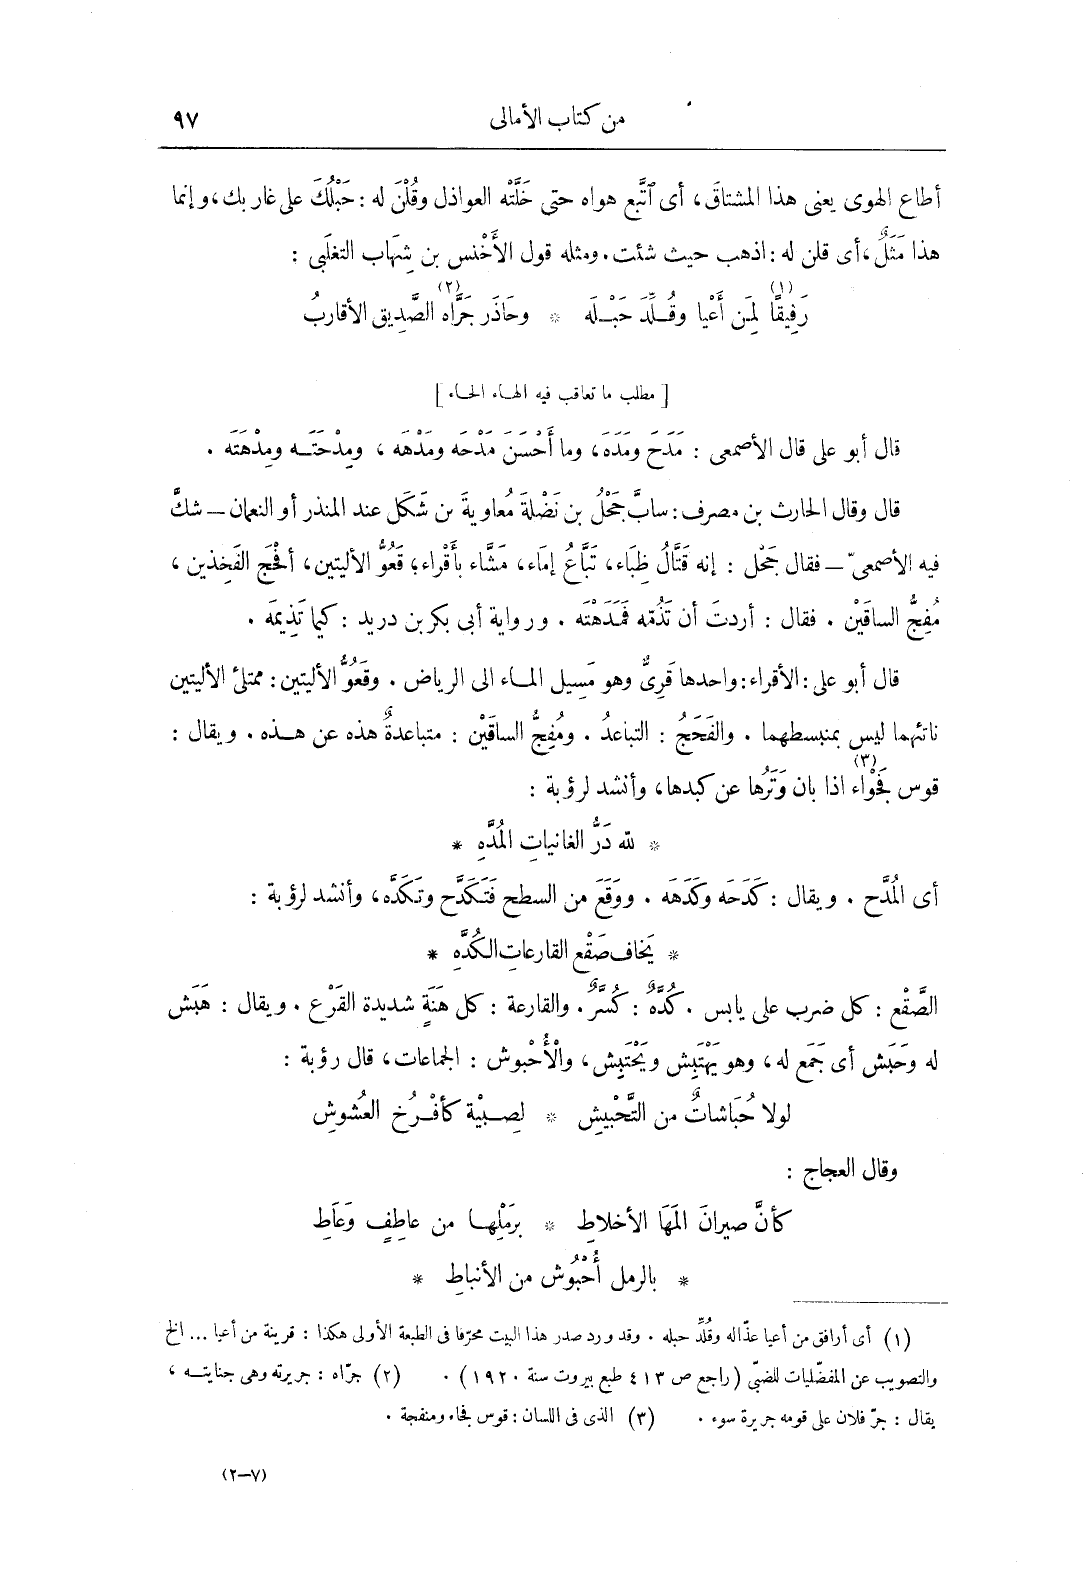 من كتاب الأمالى ٩٧
أطاع الهوى يعنى هذا المشتاق، أى ٱتَّبع هواه حتى خَلَّتْه العواذل وقُلْنَ له : حَبْلُكَ على غاربك، وإنما
هذا مَثَلٌ، أى قلن له : اذهب حيث شئت . ومثله قول الأَخْنس بن شِهَاب التغلَبى :
رَفِيقًا (١) لمَن أَعْيا وقُلِّدَ حَبْلَه * وحَاذَر جَرَّاه (٢) الصَّدِيق الأقاربُ
[ مطلب ما تعاقب فيه الهاء الحاء ]
قال أبو على قال الأصمعى : مَدَحَ ومَدَه، وما أَحْسَنَ مَدْحَه ومَدْهَه ، ومِدْحَتَه ومِدْهَتَه .
قال وقال الحارث بن مصرف : سابَّ جَحْلُ بن نَضْلةَ مُعاويةَ بن شَكَل عند المنذر أو النعمان — شكَّ
فيه الأصمعىّ — فقال جَحْل : إنه قَتَّالُ ظِبَاء، تَبَّاعُ إمَاء، مَشَّاء بأَقْراء؛ قَعُوُّ الأليتين، أفْحَج الفَخِذين ،
مُفِجُّ الساقَيْن . فقال : أردتَ أن تَذُمّه فَمَدَهْتَه . ورواية أبى بكر بن دريد : كيما تَذِيمَه .
قال أبو على : الأقراء : واحدها قَرِىٌّ وهو مَسِيل الماء الى الرياض . وقَعُوُّ الأليتين : ممتلئ الأليتين
ناتئهما ليس بمنبسطهما . والفَحَجُ : التباعدُ . ومُفِجُّ الساقَيْن : متباعدةٌ هذه عن هذه . ويقال :
قوس فَجْواء (٣) اذا بان وَتَرُها عن كبدها، وأنشد لرؤبة :
* لله دَرُّ الغانيات المُدَّهِ *
أى المُدَّح . ويقال : كَدَحَه وكَدَهَه . ووَقَعَ من السطح فَتَكَدَّح وتَكَدَّه، وأنشد لرؤبة :
* يَخاف صَقْع القارعاتِ الكُدَّهِ *
الصَّقْع : كل ضرب على يابس . كُدَّهٌ : كُسَّرٌ . والقارعة : كل هَنَةٍ شديدة القَرْع . ويقال : هَبَش
له وحَبَش أى جَمَع له، وهو يَهْتَبِش ويَحْتَبِش، والأُحْبوش : الجماعات، قال رؤبة :
لولا حُبَاشاتٌ من التَّحْبيشِ * لِصِبْيَة كأفْرُخ العُشوشِ
وقال العجاج :
كأنَّ صيرانَ المَهَا الأخلاطِ * برَمْلها من عاطِفٍ وعَاطِ
* بالرمل أُحْبُوش من الأنباطِ *
(١) أى أرافق من أعيا عذّاله وقُلِّد حبله . وقد ورد صدر هذا البيت محرّفا فى الطبعة الأولى هكذا : قرينة من أعيا ... الخ
والتصويب عن المفضّليات للضبّى (راجع ص ٤١٣ طبع بيروت سنة ١٩٢٠) . (٢) جرّاه : جريرته وهى جنايته ،
يقال : جرّ فلان على قومه جريرة سوء . (٣) الذى فى اللسان : قوس فجاء ومنفجة .
(٧—٢)